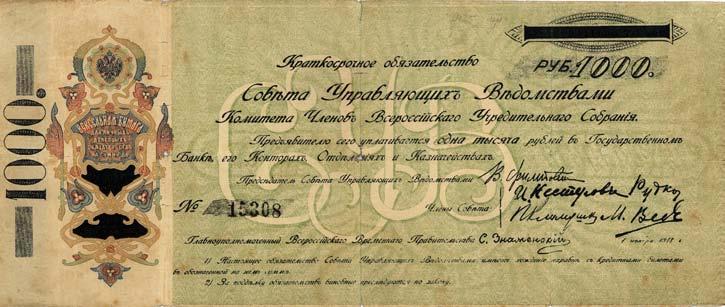 1000.
ВЕКСЕЛЬНАЯ БУМАГА
РУБ. 1000.
Краткосрочное обязательство
Совѣта Управляющихъ Вѣдомствами
Комитета Членовъ Всероссійскаго Учредительнаго Собранія.
Предъявителю сего уплачивается одна тысяча рублей въ Государственномъ
Банкѣ, его Конторахъ, Отдѣленіяхъ и Казначействахъ.
Предсѣдатель Совѣта Управляющихъ Вѣдомствами
№ 15308
Члены Совѣта:
И. Нестеровъ
Главноуполномоченный Всероссійскаго Временнаго Правительства С. Знаменскій
1) Настоящее обязательство Совѣта Управляющихъ Вѣдомствами имѣетъ хожденіе наравнѣ съ кредитными билетами
въ обозначенной на немъ суммѣ.
2) За поддѣлку обязательства виновные преслѣдуются по закону.